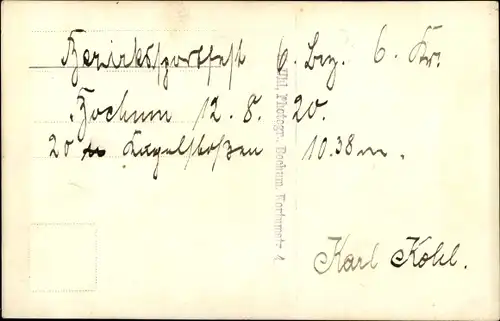 Bezirkssportfest 6. Bez. 6. Kr.
Bochum 12. 8. 20.
20 Kugelstoßen 10.38 m.
Karl Kohl.
Uhl, Photogr. Bochum,